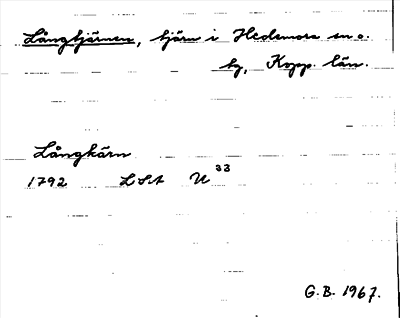 Långtjärnen, tjärn i Hedemora sn o.
hg, Kopp. län.
Långkärn
1792 LSA U³³
G.B. 1967.